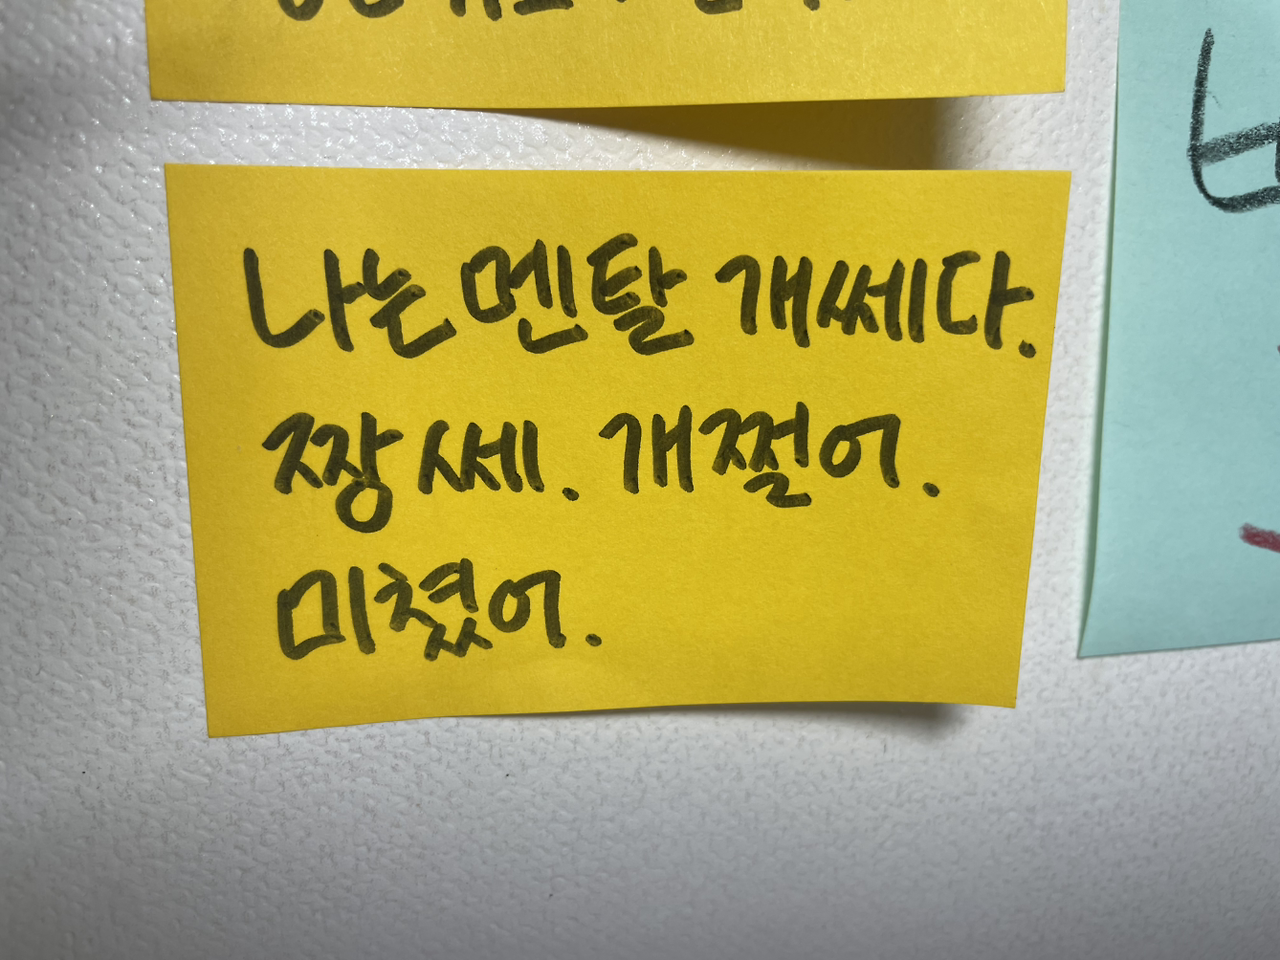 나는 멘탈 개쎄다.
짱 쎄. 개쩔어.
미쳤어.